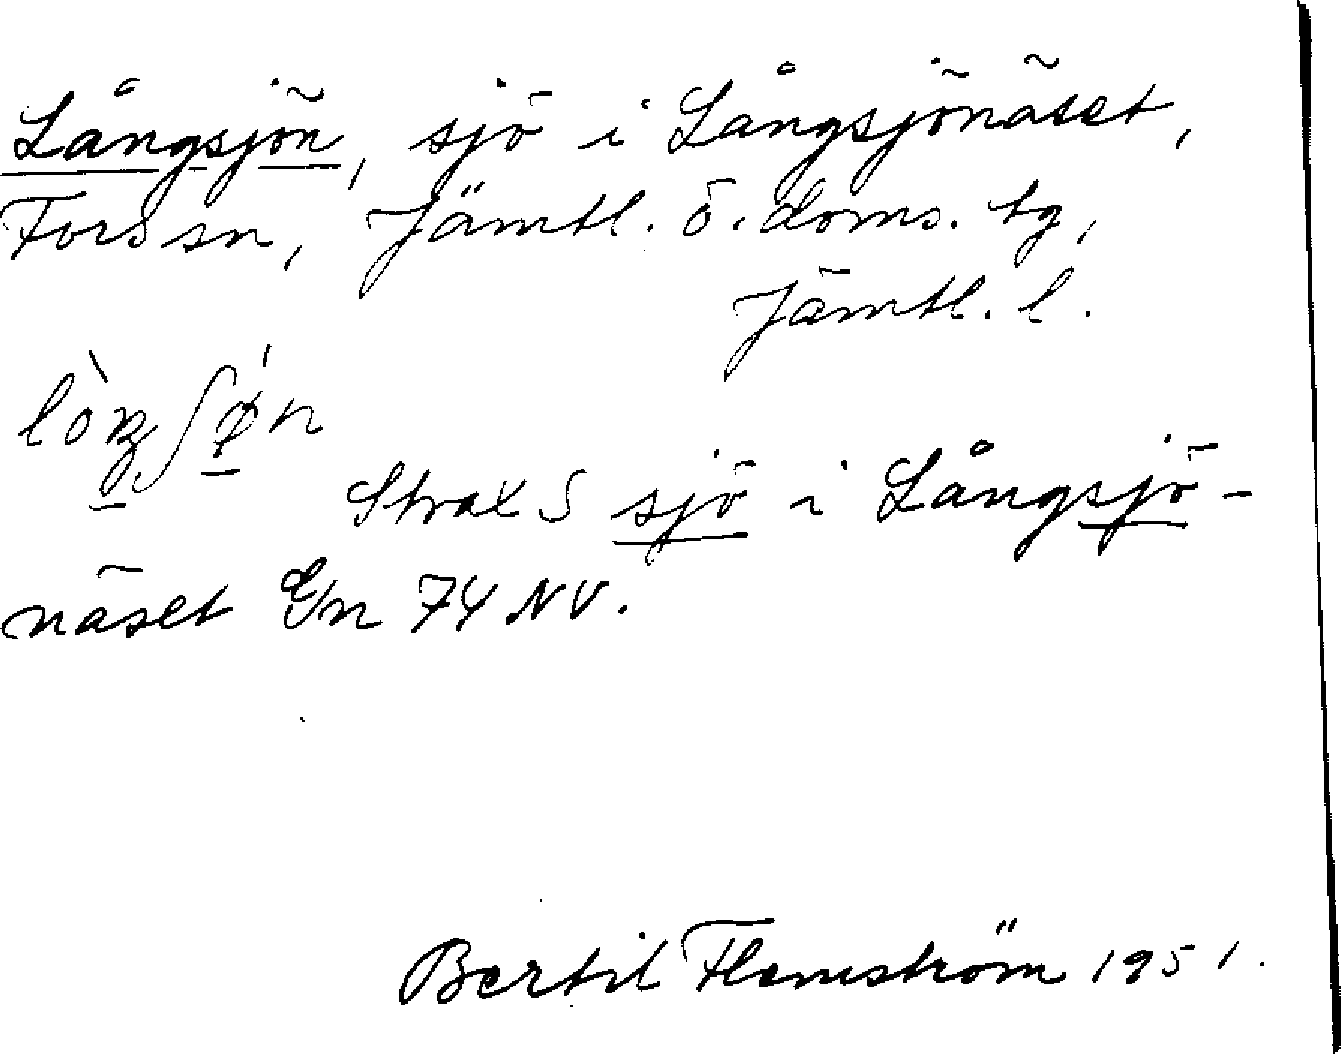 Långsjön, sjö i Långsjönäset,
Fors sn, Jämtl. ö. doms. tg,
Jämtl. l.
Strax S sjö i Långsjö-
näset Gn 74 NV.
Bertil Flemström 1951.